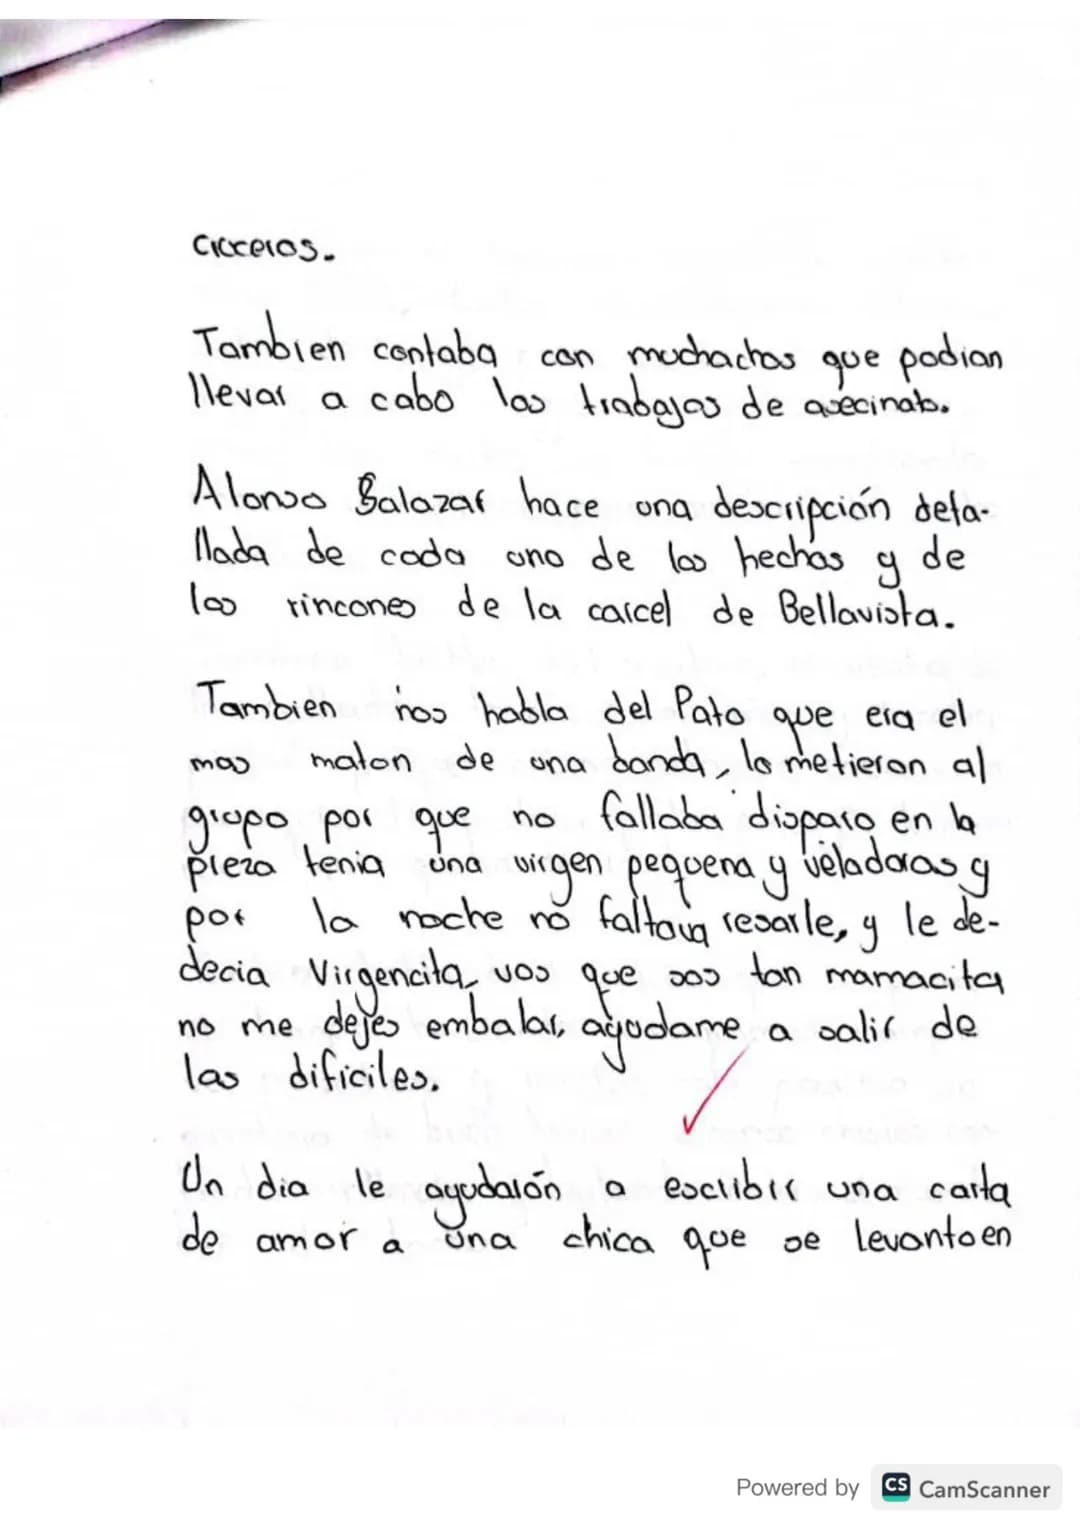 Tambien contaba con muchachos que podian
llevar a cabo los trabajos de asecinato.
Alonso Salazar hace una descripción deta-
llada de cada uno de los hechos y de
los rincones de la carcel de Bellavista.
Tambien nos habla del Pato que era el
mas maton de una banda, lo metieron al
grupo por que no fallaba disparo en la
pieza tenia una virgen pequena y veladoras y
por la noche no faltava resarle, y le de-
decia Virgencita, vos que sos tan mamacita
no me dejes embalar, ayudame a salir de
las dificiles.
Un dia le ayudarón a escribir una carta
de amor a una chica que se levanto en
Powered by CS CamScanner